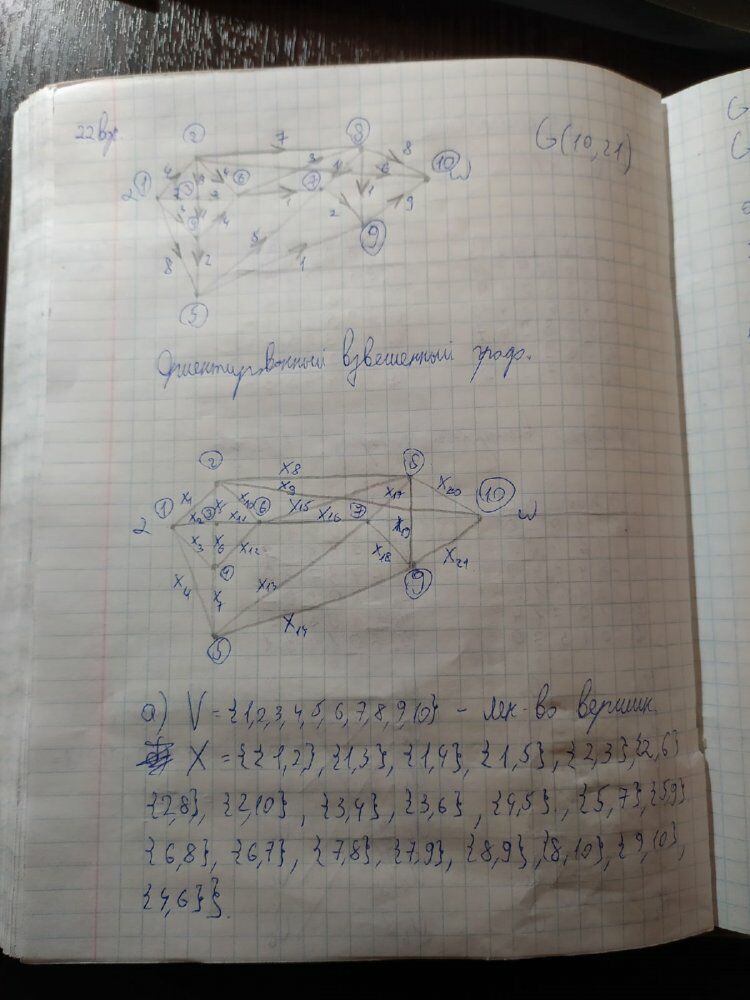 22 вар.
G(10,21)
2 7 8 8 10 ω
2 1 3 6 7
8 2 5 1 2 1 9
9
5
Ориентированный взвешенный граф.
2 x8 8
x1 x9 x17 x20 10 ω
1 x2 3 x10 6 x15 x16 7 x19
x11
x3 x6 x12 x18 9 x21
4
x4 x7 x13
5 x14
а) V = {1,2,3,4,5,6,7,8,9,10} – мн-во вершин.
X = {{1,2}, {1,3}, {1,4}, {1,5}, {2,3}, {2,6}
{2,8}, {2,10}, {3,4}, {3,6}, {4,5}, {5,7}, {5,9}
{6,8}, {6,7}, {7,8}, {7,9}, {8,9}, {8,10}, {9,10},
{4,6}}.